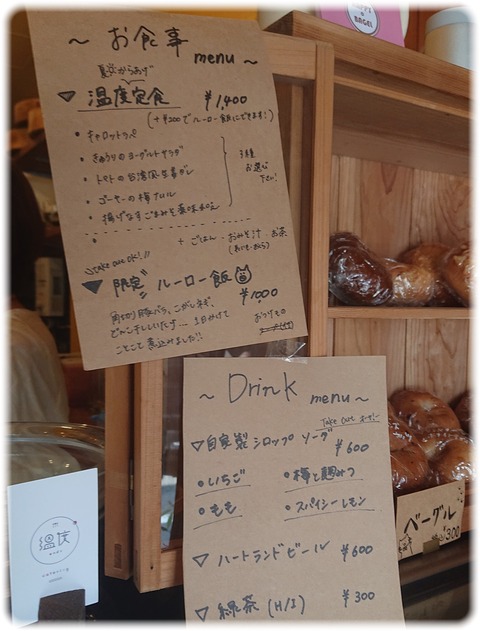 BAGEL
～ お食事 menu ～
▽ 温度定食 ¥1,400
(+¥200でルーロー飯にできます!)
・キャロットラペ
・きゅうりのヨーグルトサラダ
・トマトの台湾黒生姜ダレ
・ゴーヤーの梅ナムル
・揚げなすごまみそ薬味和え
3種
お選び
下さい!
+ ごはん・おみそ汁 お茶
take out ok!!
▼ 限定 ルーロー飯
¥1,000
角切り豚バラ、こがしネギ、
どんこ干ししいたけ… 3日かけて
ことこと煮込みました!!
おつけもの
～ Drink menu ～
Take out
▽ 自家製シロップソーダ ¥600
・いちご ・梅と麹みつ
・もも ・スパイシーレモン
▽ ハートランドビール ¥600
▽ 緑茶 (H/I) ¥300
温度
ベーグル
¥300